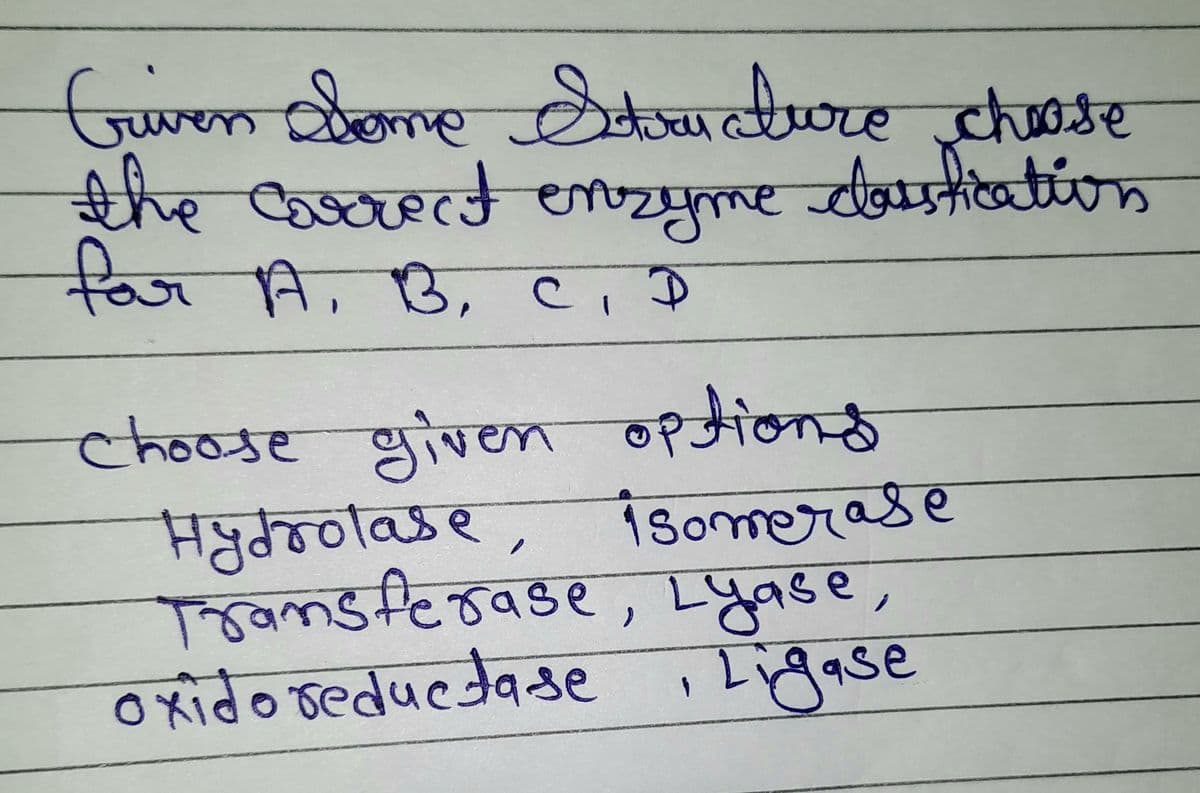 Given Some Structure choose
the Correct enzyme classfication
for A, B, C, D
choose given options
Hydrolase, isomerase
Transferase, Lyase,
oxidoreductase, Ligase